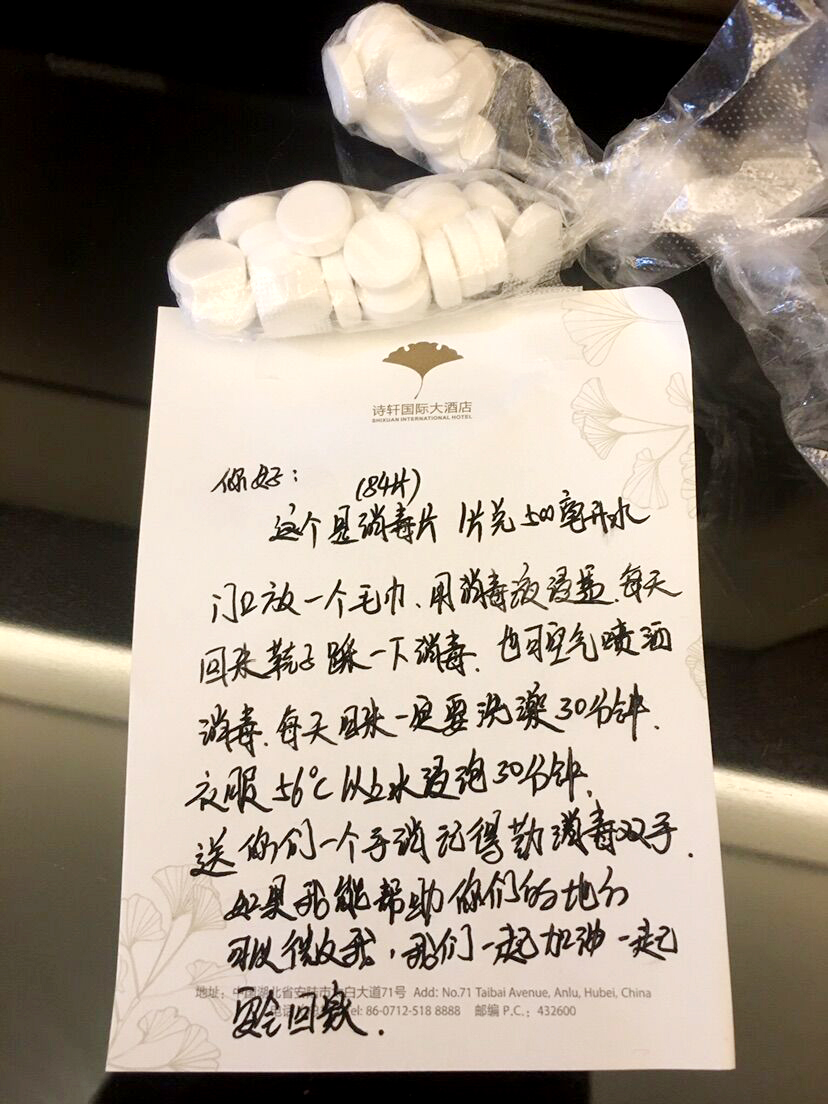 诗轩国际大酒店
SHIXUAN INTERNATIONAL HOTEL
你好:
(84片)
这个是消毒片 1片兑500毫升水
门口放一个毛巾、用消毒液浸湿.每天
回来鞋子踩一下消毒.也可空气喷洒
消毒.每天回来一定要洗澡30分钟.
衣服56℃以上水浸泡30分钟.
送你们一个手消记得勤消毒双手.
如果我能帮助你们的地方
可以微我,我们一起加油一起
地址:中国湖北省安陆市太白大道71号 Add: No.71 Taibai Avenue, Anlu, Hubei, China
Tel: 86-0712-518 8888 邮编 P.C.: 432600
回家.